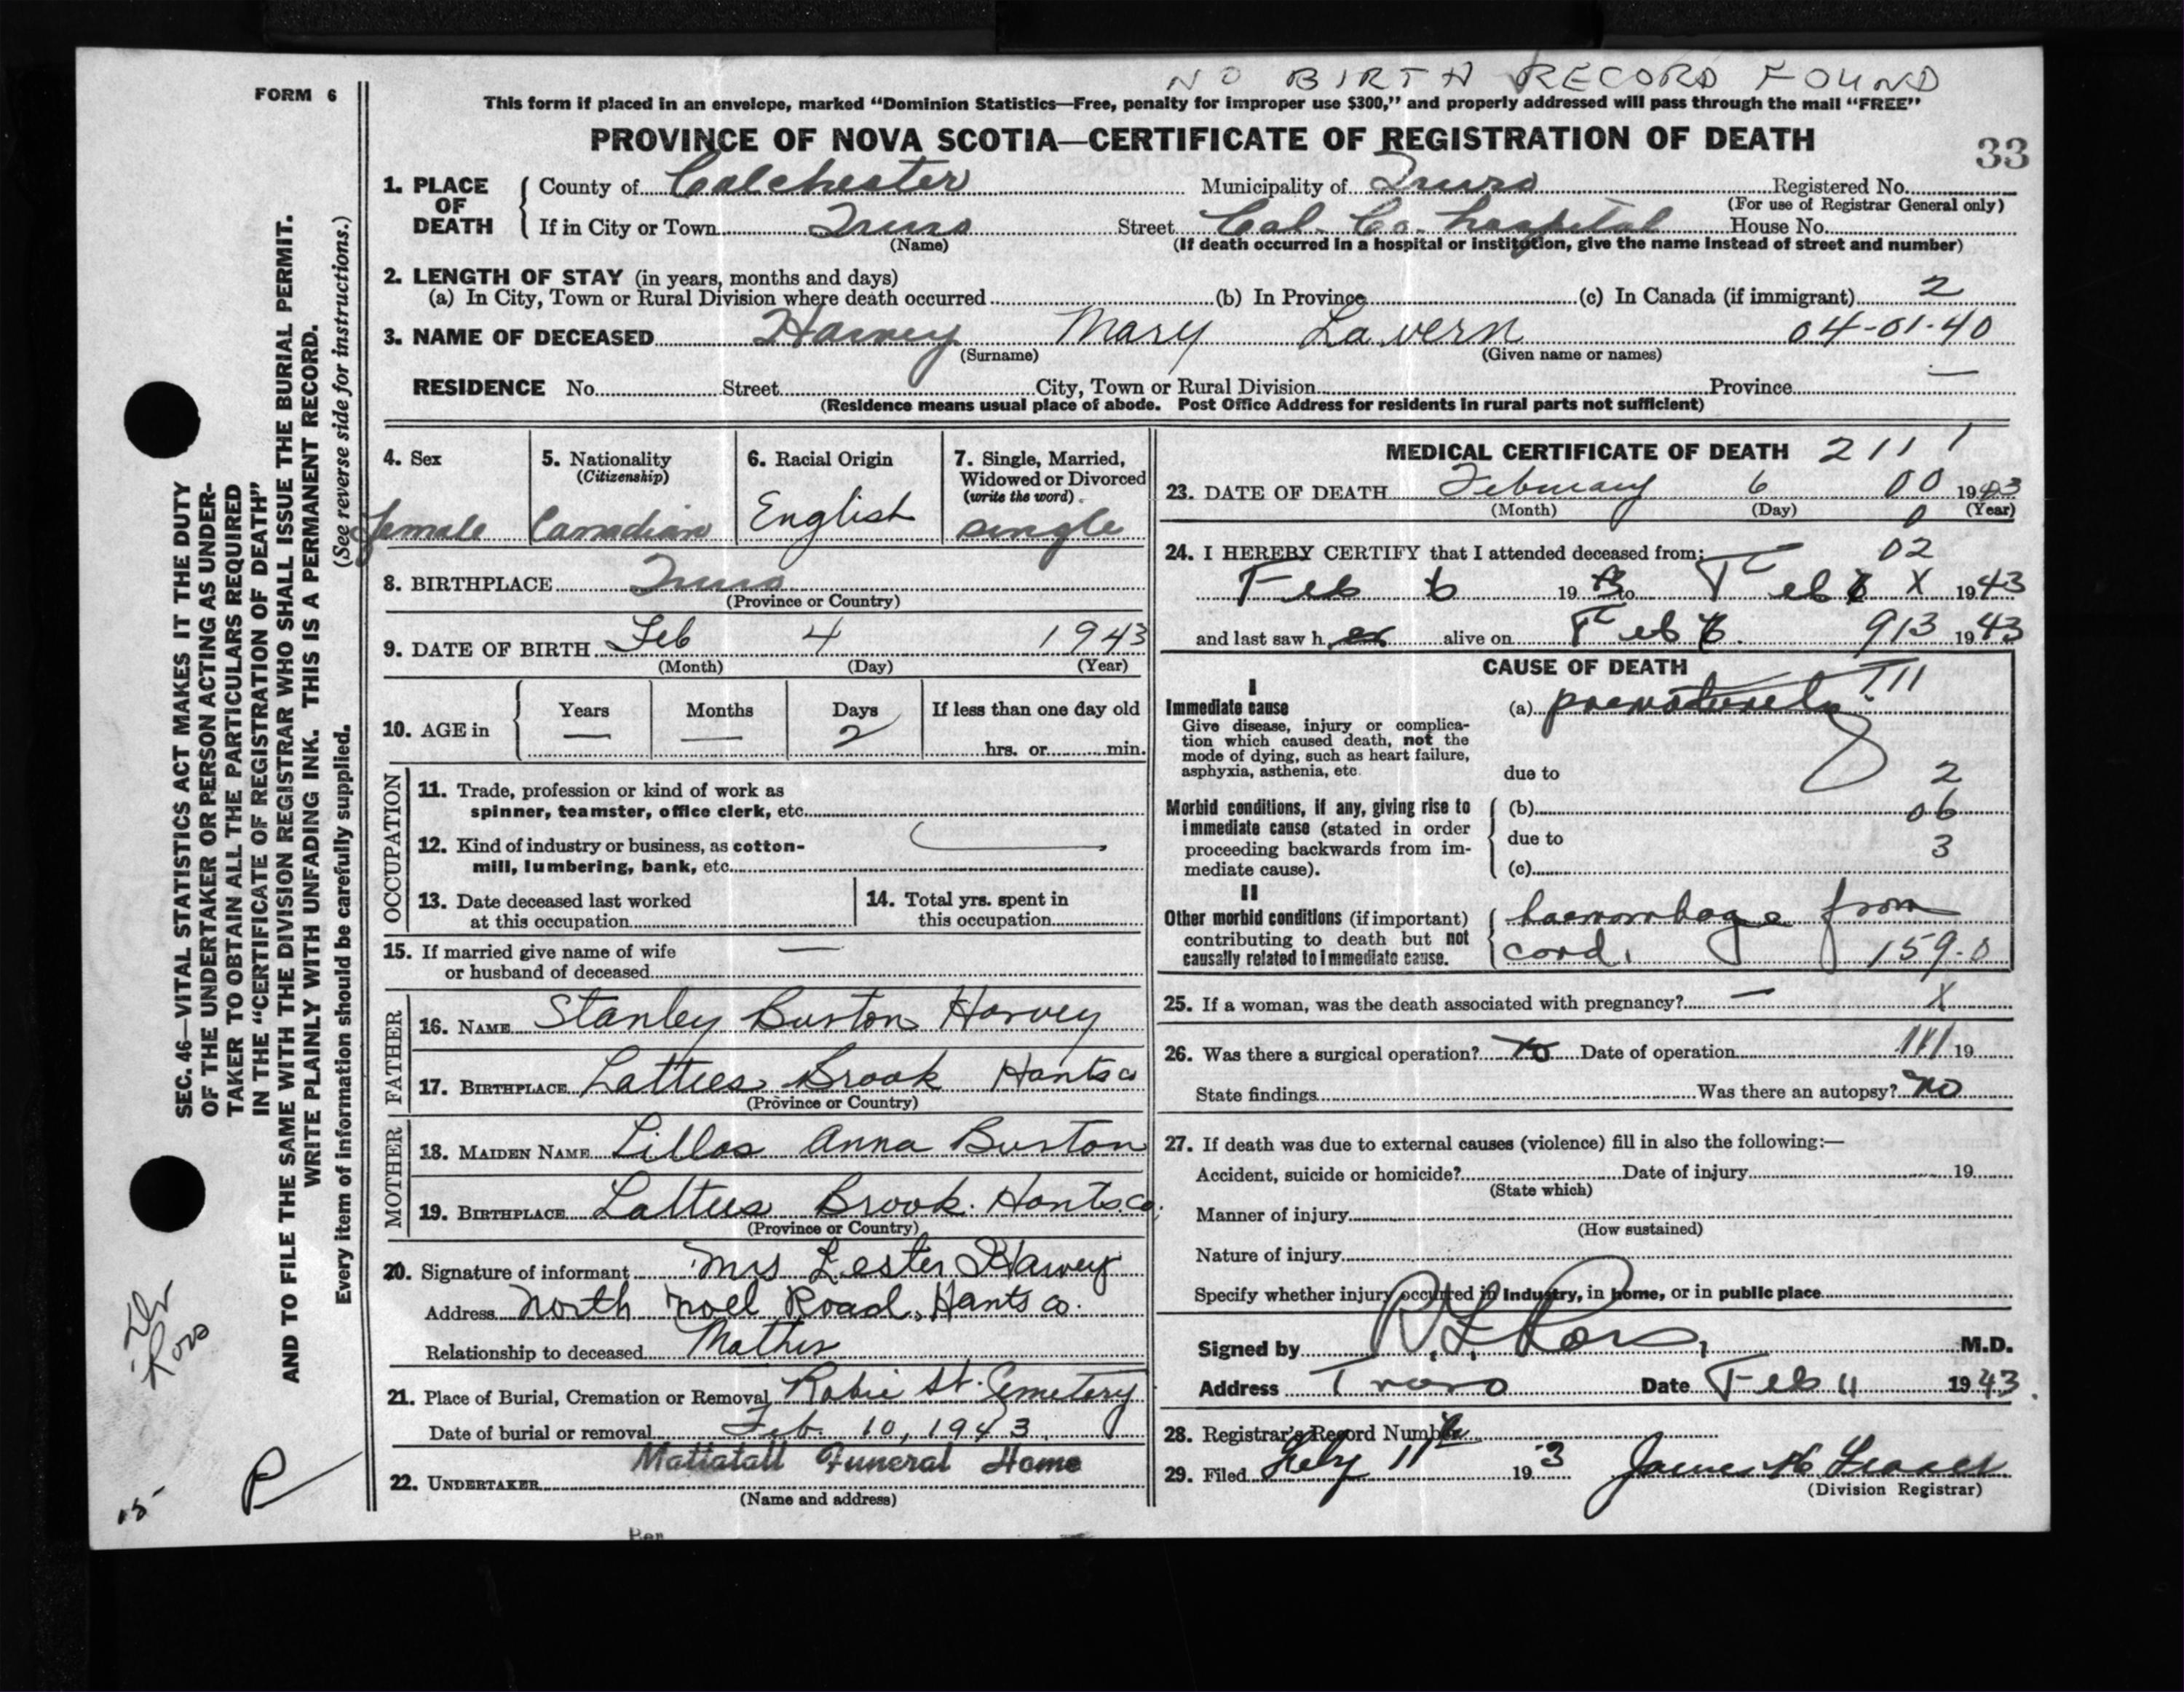 NO BIRTH RECORD FOUND
FORM 6
This form if placed in an envelope, marked "Dominion Statistics—Free, penalty for improper use $300," and properly addressed will pass through the mail "FREE"
PROVINCE OF NOVA SCOTIA—CERTIFICATE OF REGISTRATION OF DEATH
33
1. PLACE OF DEATH
County of Colchester Municipality of Truro Registered No.
(For use of Registrar General only)
If in City or Town Truro Street Col. Co. hospital House No.
(Name) (If death occurred in a hospital or institution, give the name instead of street and number)
2. LENGTH OF STAY (in years, months and days)
(a) In City, Town or Rural Division where death occurred (b) In Province (c) In Canada (if immigrant) 2
3. NAME OF DECEASED Harvey Mary Lavern 04-01-40
(Surname) (Given name or names)
RESIDENCE No. Street City, Town or Rural Division Province —
(Residence means usual place of abode. Post Office Address for residents in rural parts not sufficient)
4. Sex
female
5. Nationality
(Citizenship)
Canadian
6. Racial Origin
English
7. Single, Married,
Widowed or Divorced
(write the word)
single
8. BIRTHPLACE Truro
(Province or Country)
9. DATE OF BIRTH Feb 4 1943
(Month) (Day) (Year)
10. AGE in
Years Months Days If less than one day old
— — 2 hrs. or min.
OCCUPATION
11. Trade, profession or kind of work as
spinner, teamster, office clerk, etc.
12. Kind of industry or business, as cotton-
mill, lumbering, bank, etc.
13. Date deceased last worked
at this occupation
14. Total yrs. spent in
this occupation
15. If married give name of wife —
or husband of deceased
FATHER
16. NAME Stanley Burton Harvey
17. BIRTHPLACE Latties Brook Hants Co
(Province or Country)
MOTHER
18. MAIDEN NAME Lillas Anna Burton
19. BIRTHPLACE Latties Brook. Hants. Co.
(Province or Country)
20. Signature of informant Mrs Lester Harvey
Address North Noel Road, Hants Co.
Relationship to deceased Mother
21. Place of Burial, Cremation or Removal Robie St. Cemetery
Date of burial or removal Feb. 10, 1943.
22. UNDERTAKER Mattatall Funeral Home
(Name and address)
MEDICAL CERTIFICATE OF DEATH 211 1
23. DATE OF DEATH February 6 00 1943
(Month) (Day) 0 (Year)
24. I HEREBY CERTIFY that I attended deceased from: 02
Feb 6 19 43 to Feb 6 X 1943
and last saw h er alive on Feb 6. 913 1943
CAUSE OF DEATH
I
Immediate cause
Give disease, injury or complica-
tion which caused death, not the
mode of dying, such as heart failure,
asphyxia, asthenia, etc.
(a) prematurety. 111
due to 2
Morbid conditions, if any, giving rise to
immediate cause (stated in order
proceeding backwards from im-
mediate cause).
(b) 06
due to 3
(c)
II
Other morbid conditions (if important)
contributing to death but not
causally related to immediate cause.
haemorrhage from
cord. 159.0
25. If a woman, was the death associated with pregnancy? — X
26. Was there a surgical operation? no Date of operation 111 19
State findings Was there an autopsy? no
27. If death was due to external causes (violence) fill in also the following:—
Accident, suicide or homicide? Date of injury 19
(State which)
Manner of injury
(How sustained)
Nature of injury
Specify whether injury occurred in Industry, in home, or in public place
Signed by R. L. Ross, M.D.
Address Truro Date Feb 11 1943.
28. Registrar's Record Number
29. Filed Feby 11th 19 3 James H
(Division Registrar)
SEC. 46—VITAL STATISTICS ACT MAKES IT THE DUTY
OF THE UNDERTAKER OR PERSON ACTING AS UNDER-
TAKER TO OBTAIN ALL THE PARTICULARS REQUIRED
IN THE "CERTIFICATE OF REGISTRATION OF DEATH"
AND TO FILE THE SAME WITH THE DIVISION REGISTRAR WHO SHALL ISSUE THE BURIAL PERMIT.
WRITE PLAINLY WITH UNFADING INK. THIS IS A PERMANENT RECORD.
Every item of information should be carefully supplied. (See reverse side for instructions.)
Dr Ross
P
15-